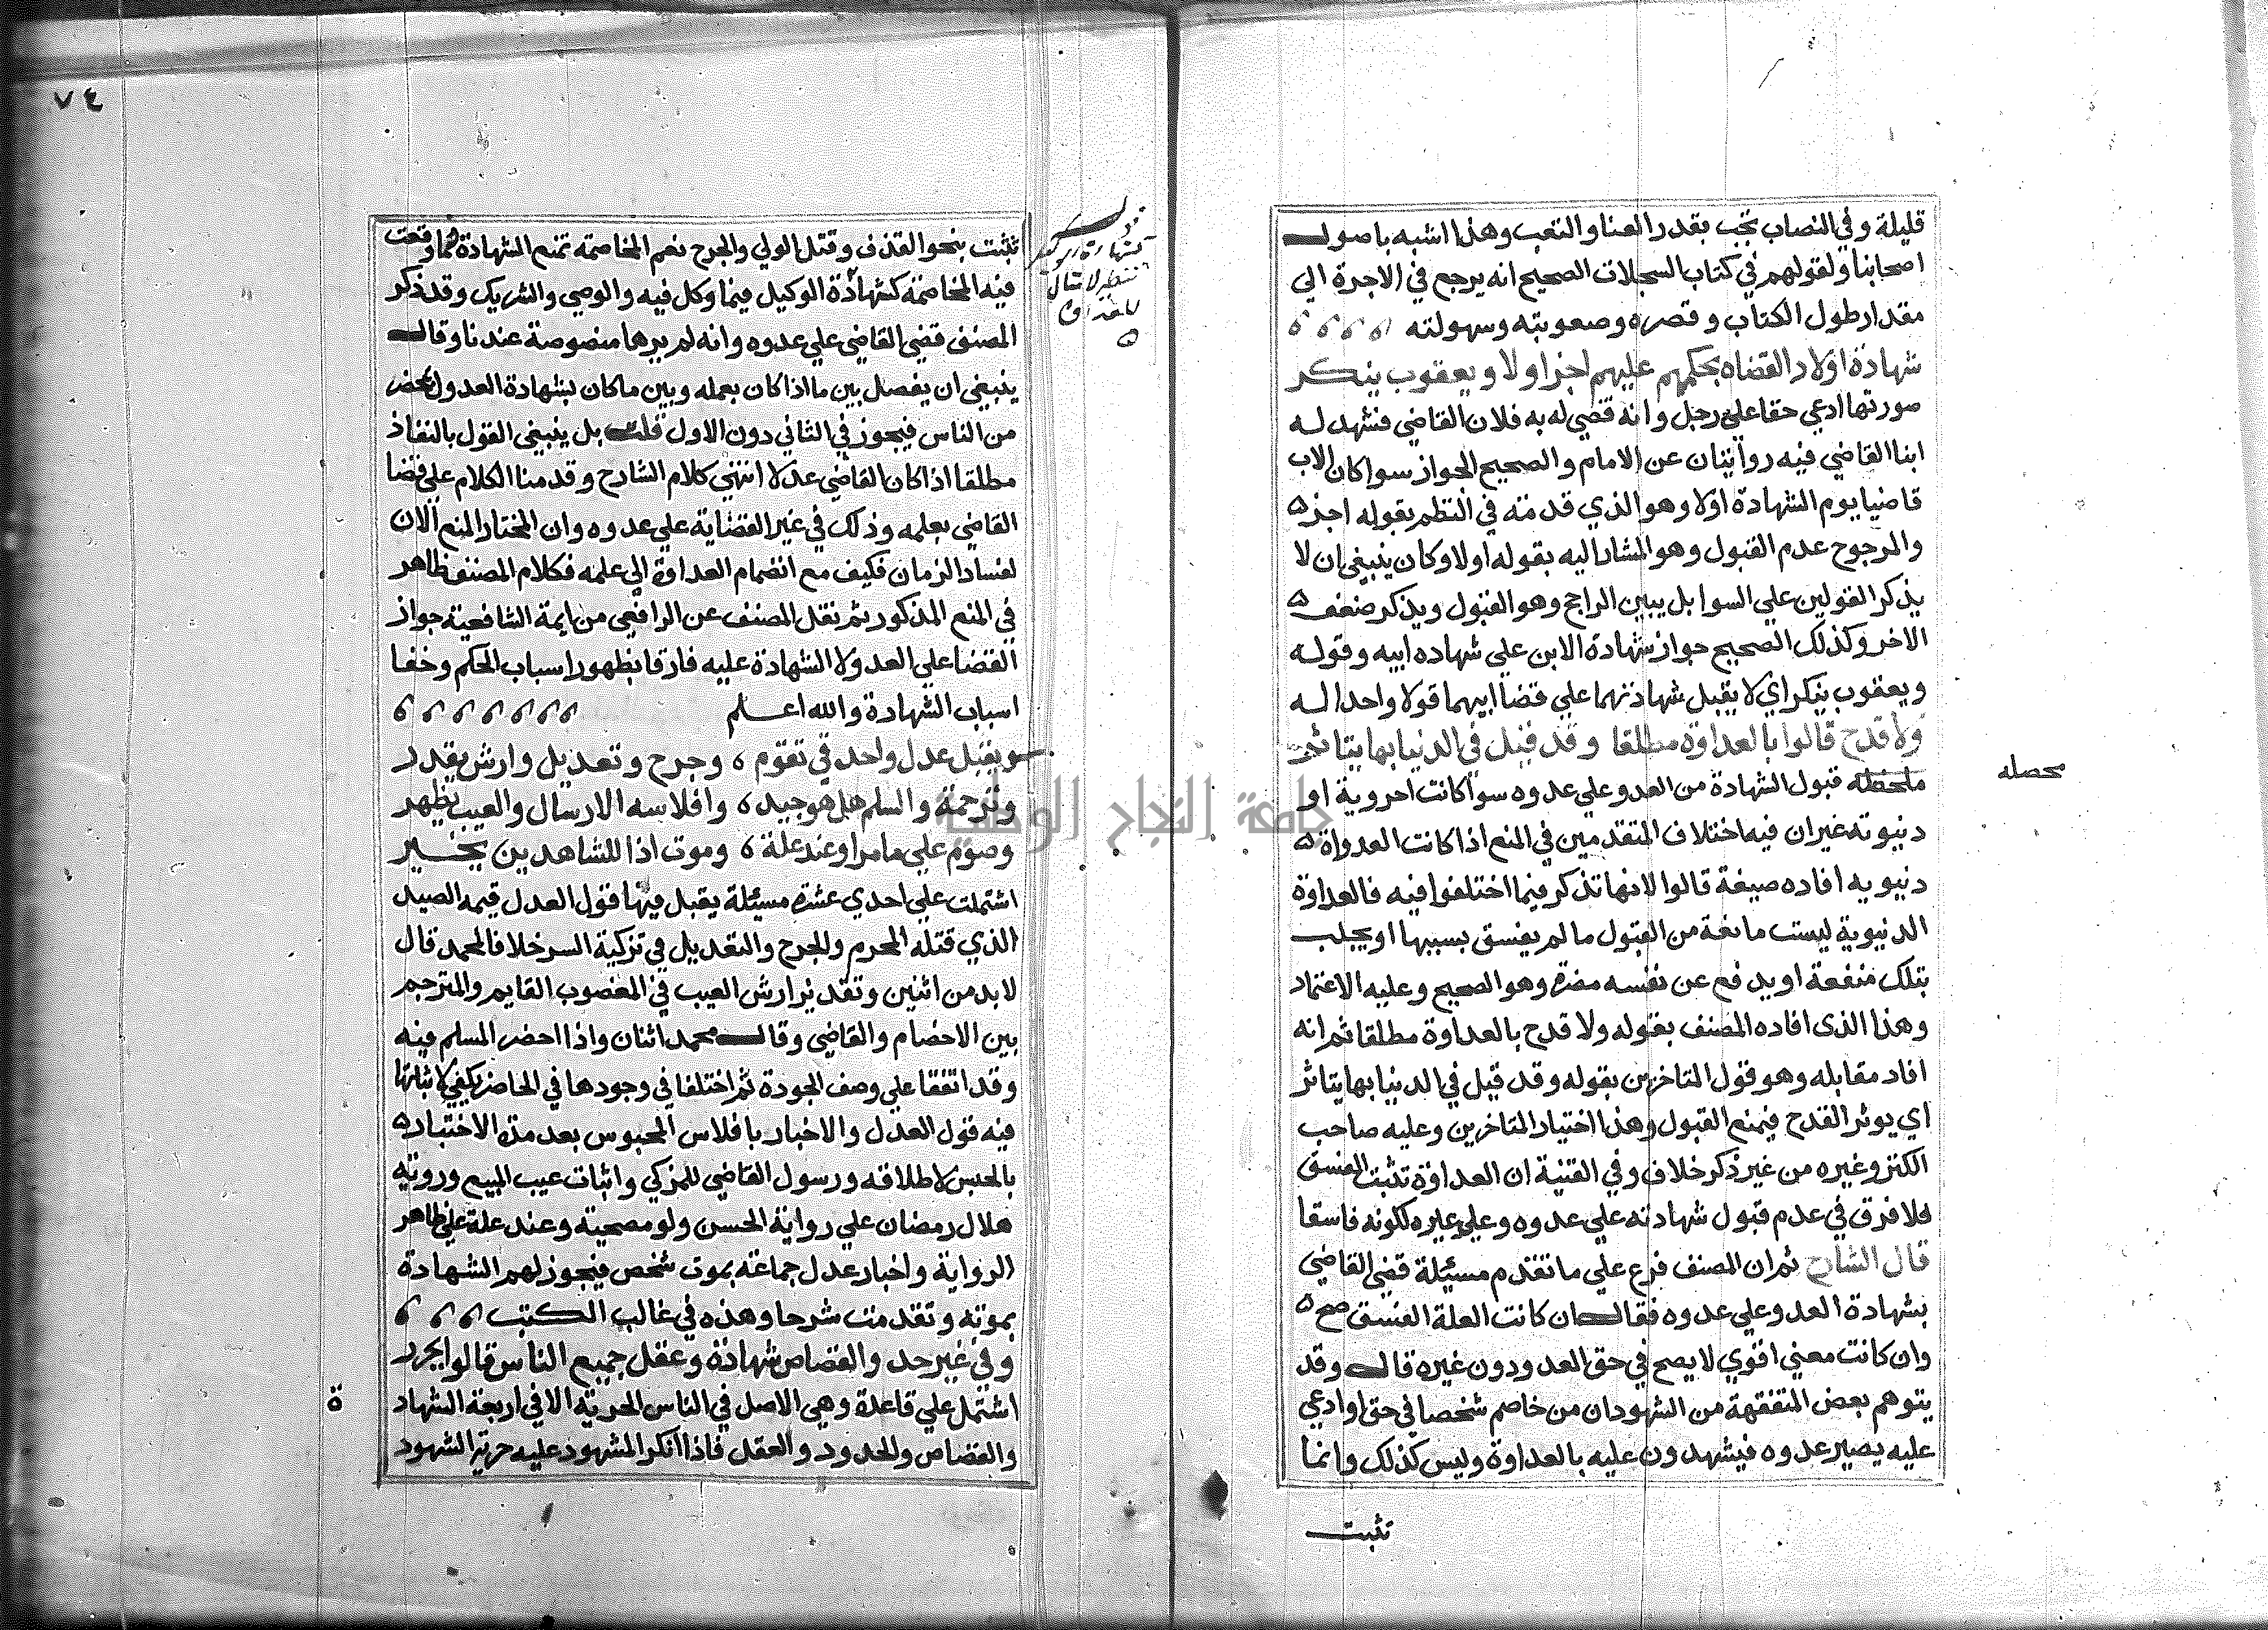 قليلة وفي النصاب تجب بقدر العنا والتعب وهذا اشبه باصول
اصحابنا ولقولهم في كتاب السجلات الصحيح انه يرجع في الاجرة الي
مقدار طول الكتاب وقصره وصعوبته وسهولته
شهادة اولاد القضاه بحكمهم عليهم اجز اولا ويعقوب ينكر
صورتها ادعي حقا علي رجل وانه قضي له به فلان القاضي فشهد له
ابنا القاضي فيه روايتان عن الامام والصحيح الجواز سوا كان الاب
قاضيا يوم الشهادة اولا وهو الذي قدمته في النظم بقوله اجز ه
والمرجوح عدم القبول وهو المشار اليه بقوله اولا وكان ينبغي ان لا
يذكر القولين علي السوا بل يبين الراجح وهو القبول ويذكر ضعف ه
الاخر وكذلك الصحيح جواز شهادة الابن علي شهاده ابيه وقوله
ويعقوب ينكر اي لا يقبل شهادتهما علي قضا ابيهما قولا واحدا له
ولا قدح قالوا بالعداوة مطلقا وقد قيل في الدنيا بها يتاثر
ملحظه قبول الشهادة من العدو علي عدوه سوا كانت اخروية او
محصله
دنيوته غير ان فيه اختلاف المتقدمين في المنع اذا كانت العدواة ه
دنيويه افاده صيغة قالوا لانها تذكر فيما اختلفوا فيه فالعداوة
الدنيوية ليست مانعة من القبول ما لم يفسق بسببها او يجلب
بتلك منفعة او يدفع عن نفسه مضرة وهو الصحيح وعليه الاعتماد
وهذا الذي افاده المصنف بقوله ولا قدح بالعداوة مطلقا ثم انه
افاد مقابله وهو قول المتاخرين بقوله وقد قيل في الدنيا بها يتاثر
اي يوثر القدح فيمنع القبول وهذا اختيار المتاخرين وعليه صاحب
الكنز وغيره من غير ذكر خلاف وفي القنية ان العداوة تثبت الفسق
فلا فرق في عدم قبول شهادته علي عدوه وعلي غيره لكونه فاسقا
قال الشارح ثم ان المصنف فرع علي ما تقدم مسئلة قضي القاضي
بشهادة العدو علي عدوه فقال ان كانت العلة الفسق صح ه
وان كانت معني اقوي لا يصح في حق العدو دون غيره قال وقد
يتوهم بعض المتفقهة من الشهود ان من خاصم شخصا في حق او ادعي
عليه يصير عدوه فيشهدون عليه بالعداوة وليس كذلك وانما
تثبت
٧٤
تثبت بنحو القذف وقتل الولي والجرح نعم المخاصمة تمنع الشهادة فيما وقعت
فيه المخاصمة كشهادة الوكيل فيما وكل فيه والوصي والشريك وقد ذكر
المصنف قضي القاضي علي عدوه وانه لم يرها منصوصة عندنا وقال
ينبغي ان يفصل بين ما اذا كان بعمله وبين ما كان بشهادة العدول بمحضر
من الناس فيجوز في الثاني دون الاول قلت بل ينبغي القول بالنفاذ
مطلقا اذا كان القاضي عدلا انتهي كلام الشارح وقدمنا الكلام علي قضا
القاضي بعلمه وذلك في غير القضاية علي عدوه وان المختار المنع الان
لفساد الزمان فكيف مع انضمام العداوة الي علمه فكلام المصنف ظاهر
في المنع المذكور ثم نقل المصنف عن الرافعي من ايمة الشافعية جواز
القضا علي العدو لا الشهادة عليه فارقا بظهور اسباب الحكم وخفا
اسباب الشهادة والله اعلم
ويقبل عدل واحد في تقوم ، وجرح وتعديل وارش يقدر
وترجمة والسلم هل هو جيد ، وافلاسه الارسال والعيب يظهر
وصوم علي ما مر او عند علة ، وموت اذا للشاهدين يخبر
اشتملت علي احدي عشرة مسئلة يقبل فيها قول العدل قيمه الصيد
الذي قتله المحرم والجرح والتعديل في تزكية السر خلافا لمحمد قال
لا بد من اثنين وتقدير ارش العيب في المغصوب القايم والمترجم
بين الاخصام والقاضي وقال محمد اثنان واذا احضر المسلم فيه
وقد اتفقا علي وصف الجودة ثم اختلفا في وجودها في الحاضر يكفي لاثباتها
فيه قول العدل والاخبار بافلاس المحبوس بعد مدة الاختبار ه
بالحبس لاطلاقه ورسول القاضي للمزكي واثبات عيب المبيع وروته
هلال رمضان علي رواية الحسن ولو مصحية وعند علة علي ظاهر
الرواية واخبار عدل جماعة بموت شخص فيجوز لهم الشهادة
بموته وتقدمت شرحا وهذه في غالب الكتب
وفي غير حد والقصاص شهادة وعقل جميع الناس قالوا يحرر
اشتمل علي قاعدة وهي الاصل في الناس الحرية الا في اربعة الشهاد
ة
والقصاص والحدود والعقل فاذا انكر المشهود عليه حرية الشهود
جامعة النجاح الوطنية